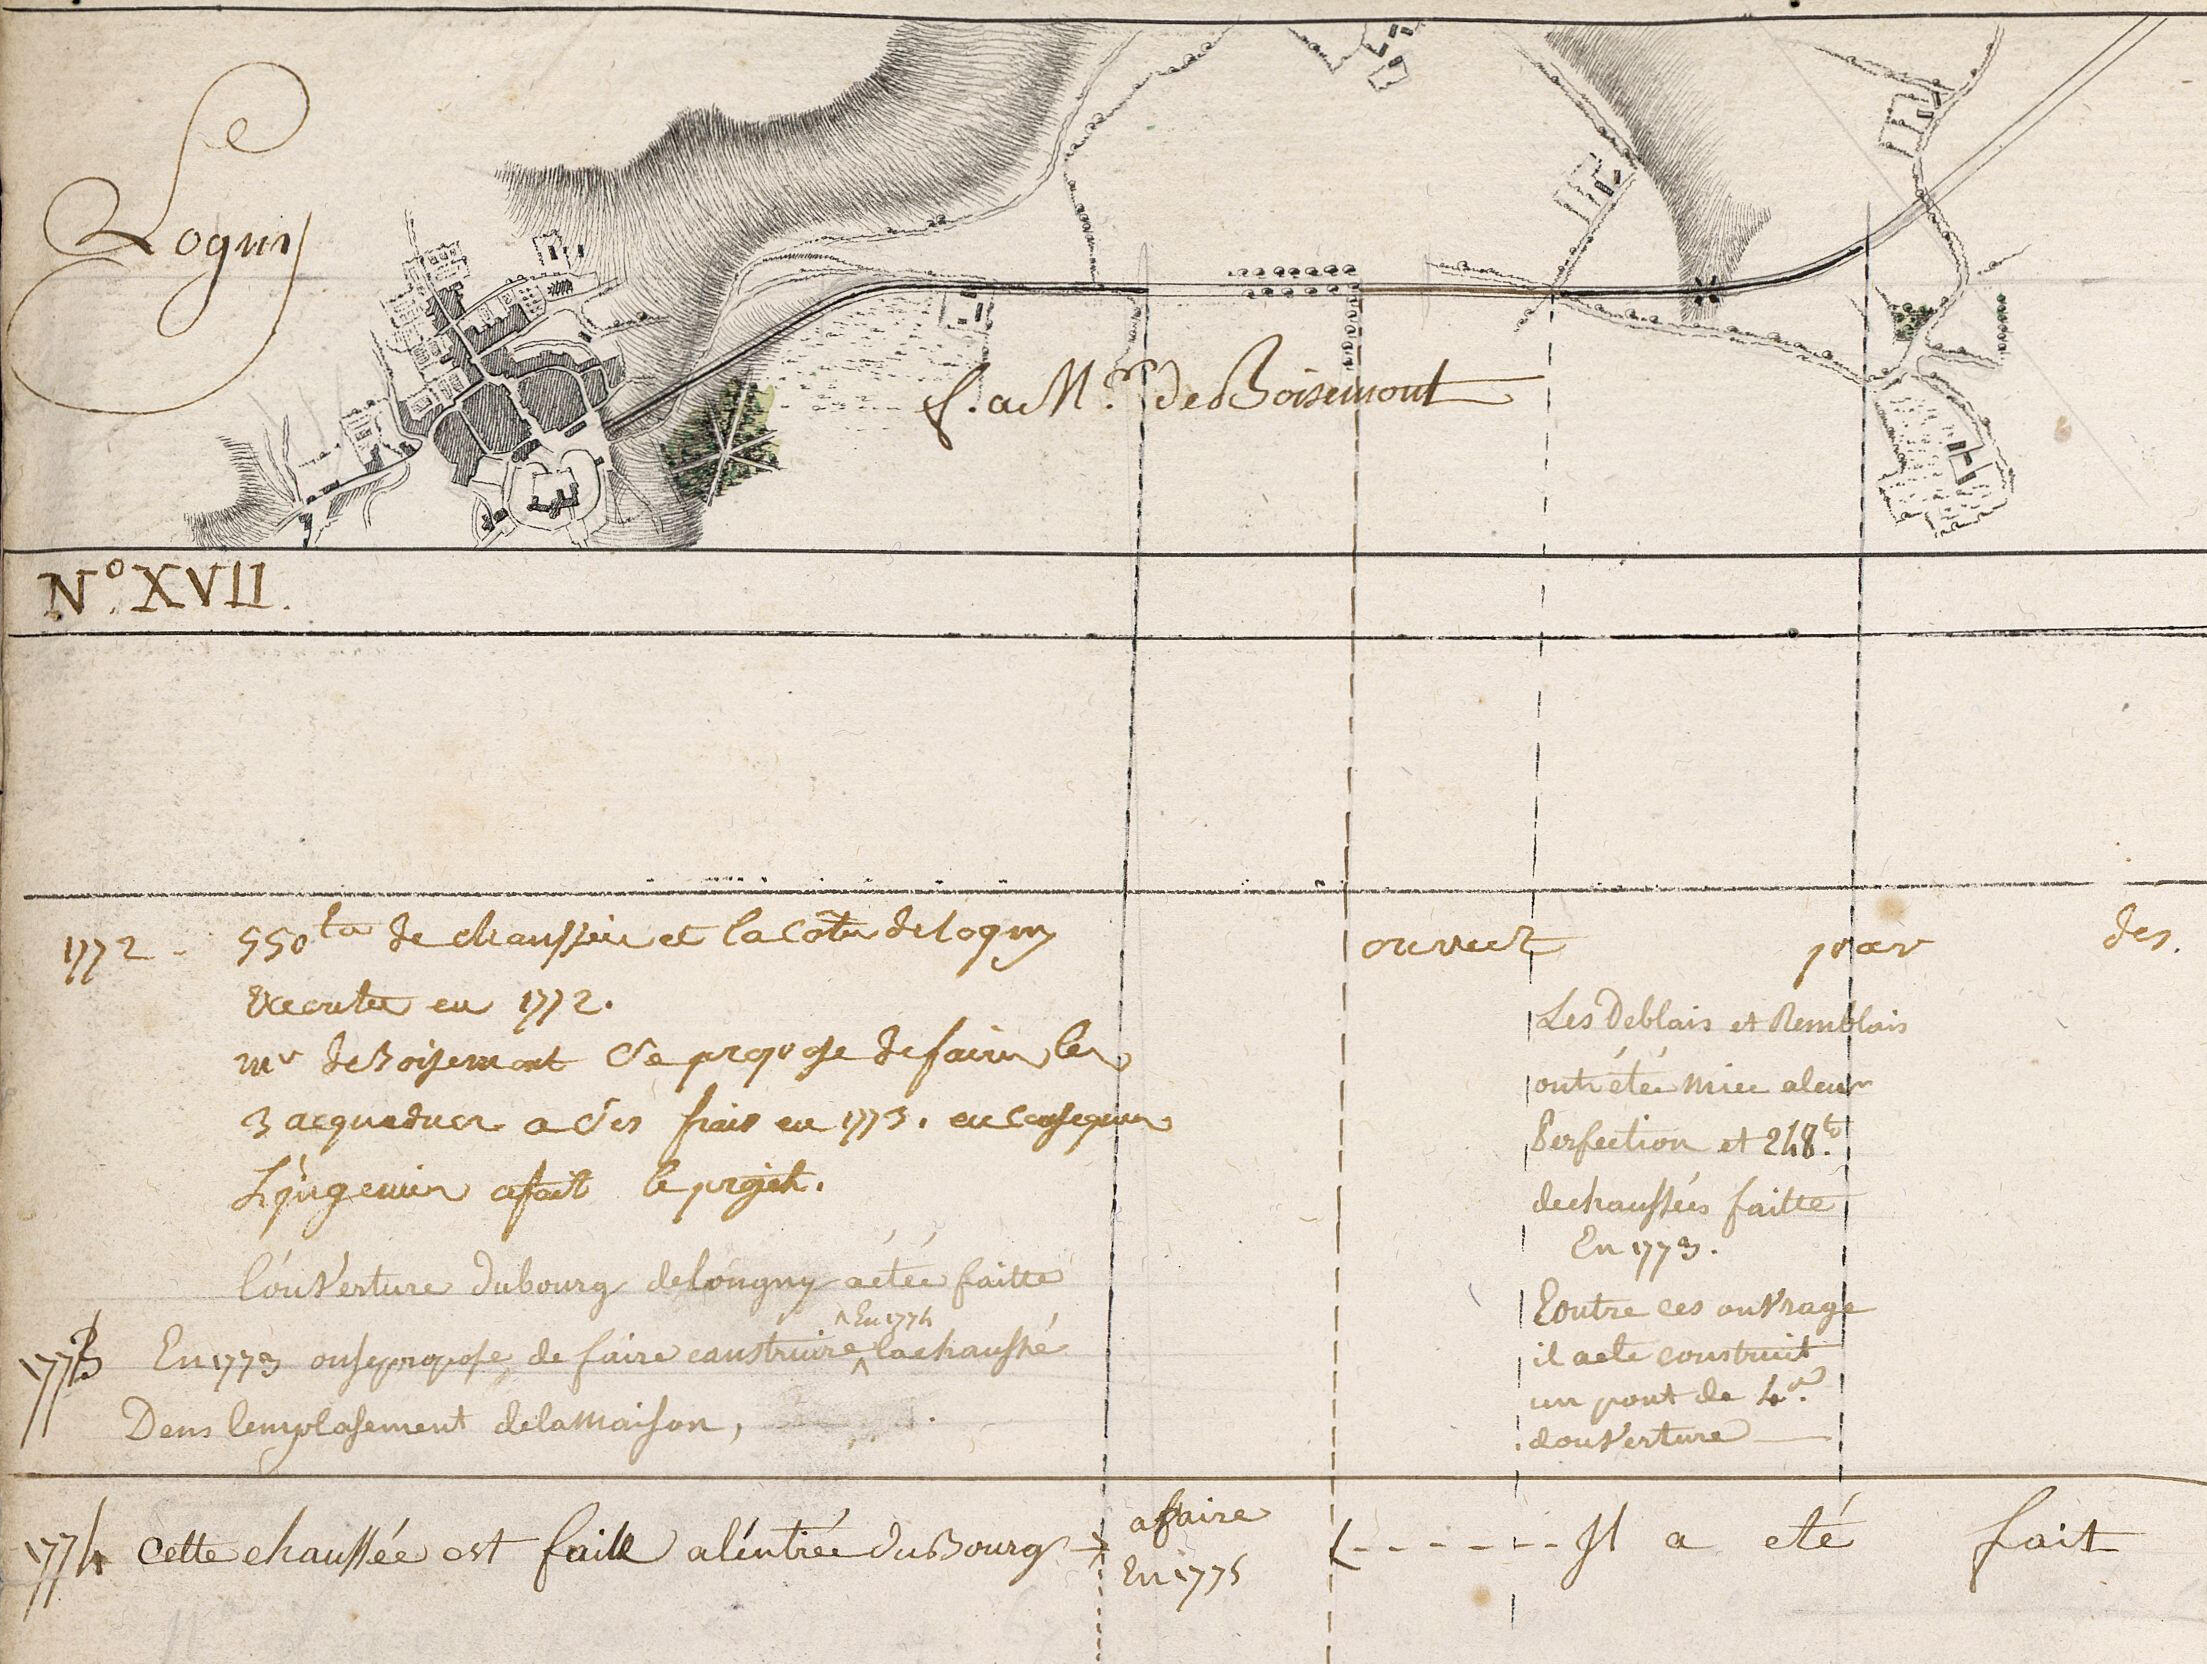 Le
Logni
f. a Mr. de Boisemont
No. XVII.
1772 - 550 tes de chaussée et la Côte de logny
Executee en 1772.
mr de Boisemont Se propose de faire les
3 acqueducs a Ses frais en 1773. en Consequence
L'ingenieur a fait le projet.
ouvert par des.
Les Deblais et Remblais
ont étée mise a leur
Perfection et 248 to.
de chaussées faitte
En 1773.
Eoutre ces ouvrage
il a ete construit
un pont de 4
d'ouverture
l'ouverture du bourg de longny a étée faitte
1773 En 1773 on se propose de faire construire ^ En 1774 la chaussé
Dens l'emplasement de la maison,
1774 Cette chaussée est faite a l'éntrée du Bourg
a faire
En 1775
Il a eté fait